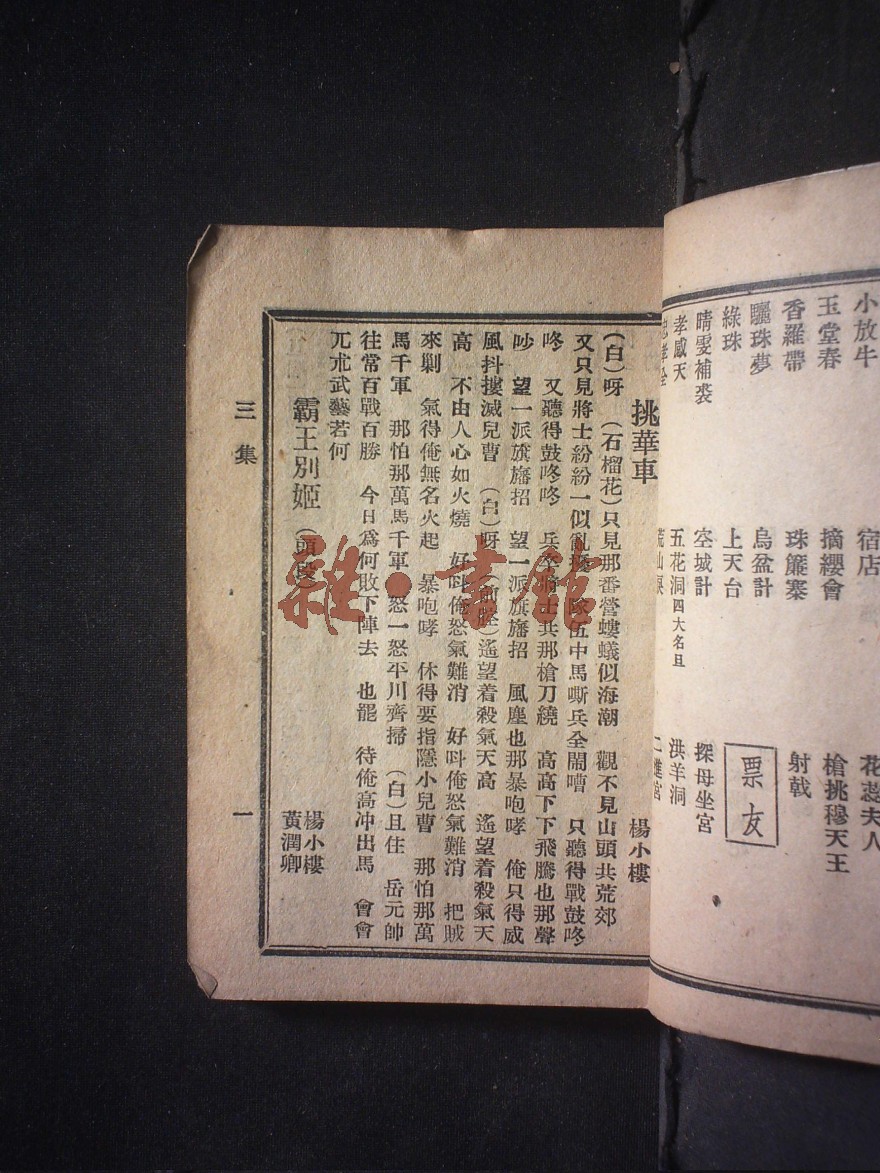 小放牛　宿店　花蕊夫人
玉堂春　摘纓會　槍挑穆天王
香羅帶　珠簾寨　射戟
驪珠夢　烏盆計　票友
綠珠　上天台
晴雯補裘　空城計　探母坐宮
孝感天　五花洞四大名旦　洪羊洞
挑華車　楊小樓
(白)呀　(石榴花)只見那番營螻蟻似海潮　觀不見山頭共荒郊
又只見將士紛紛一似亂　隊伍中馬嘶兵全鬧嘈　只聽得戰鼓咚
咚　又聽得鼓咚咚　兵卒將士共那槍刀繞　高高下下飛騰也那聲
吵　望一派旗旛招　望一派旗旛招　風塵也那暴咆哮　俺只得威
風抖摟滅兒曹　(白)呀　遙望着殺氣天高　遙望着殺氣天
高　不由人心如火燒　好呌俺怒氣難消　好呌俺怒氣難消　把賊
來剿　氣得俺無名火起　暴咆哮　休得要指隱小兒曹　那怕那萬
馬千軍　那怕那萬馬千軍　怒一怒平川齊掃　(白)且住　岳元帥
往常百戰百勝　今日爲何敗下陣去　也罷　待俺高冲出馬　會會
兀朮武藝若何
霸王別姬(頭段)　楊小樓　黃潤卿
三集　一
雜·書館